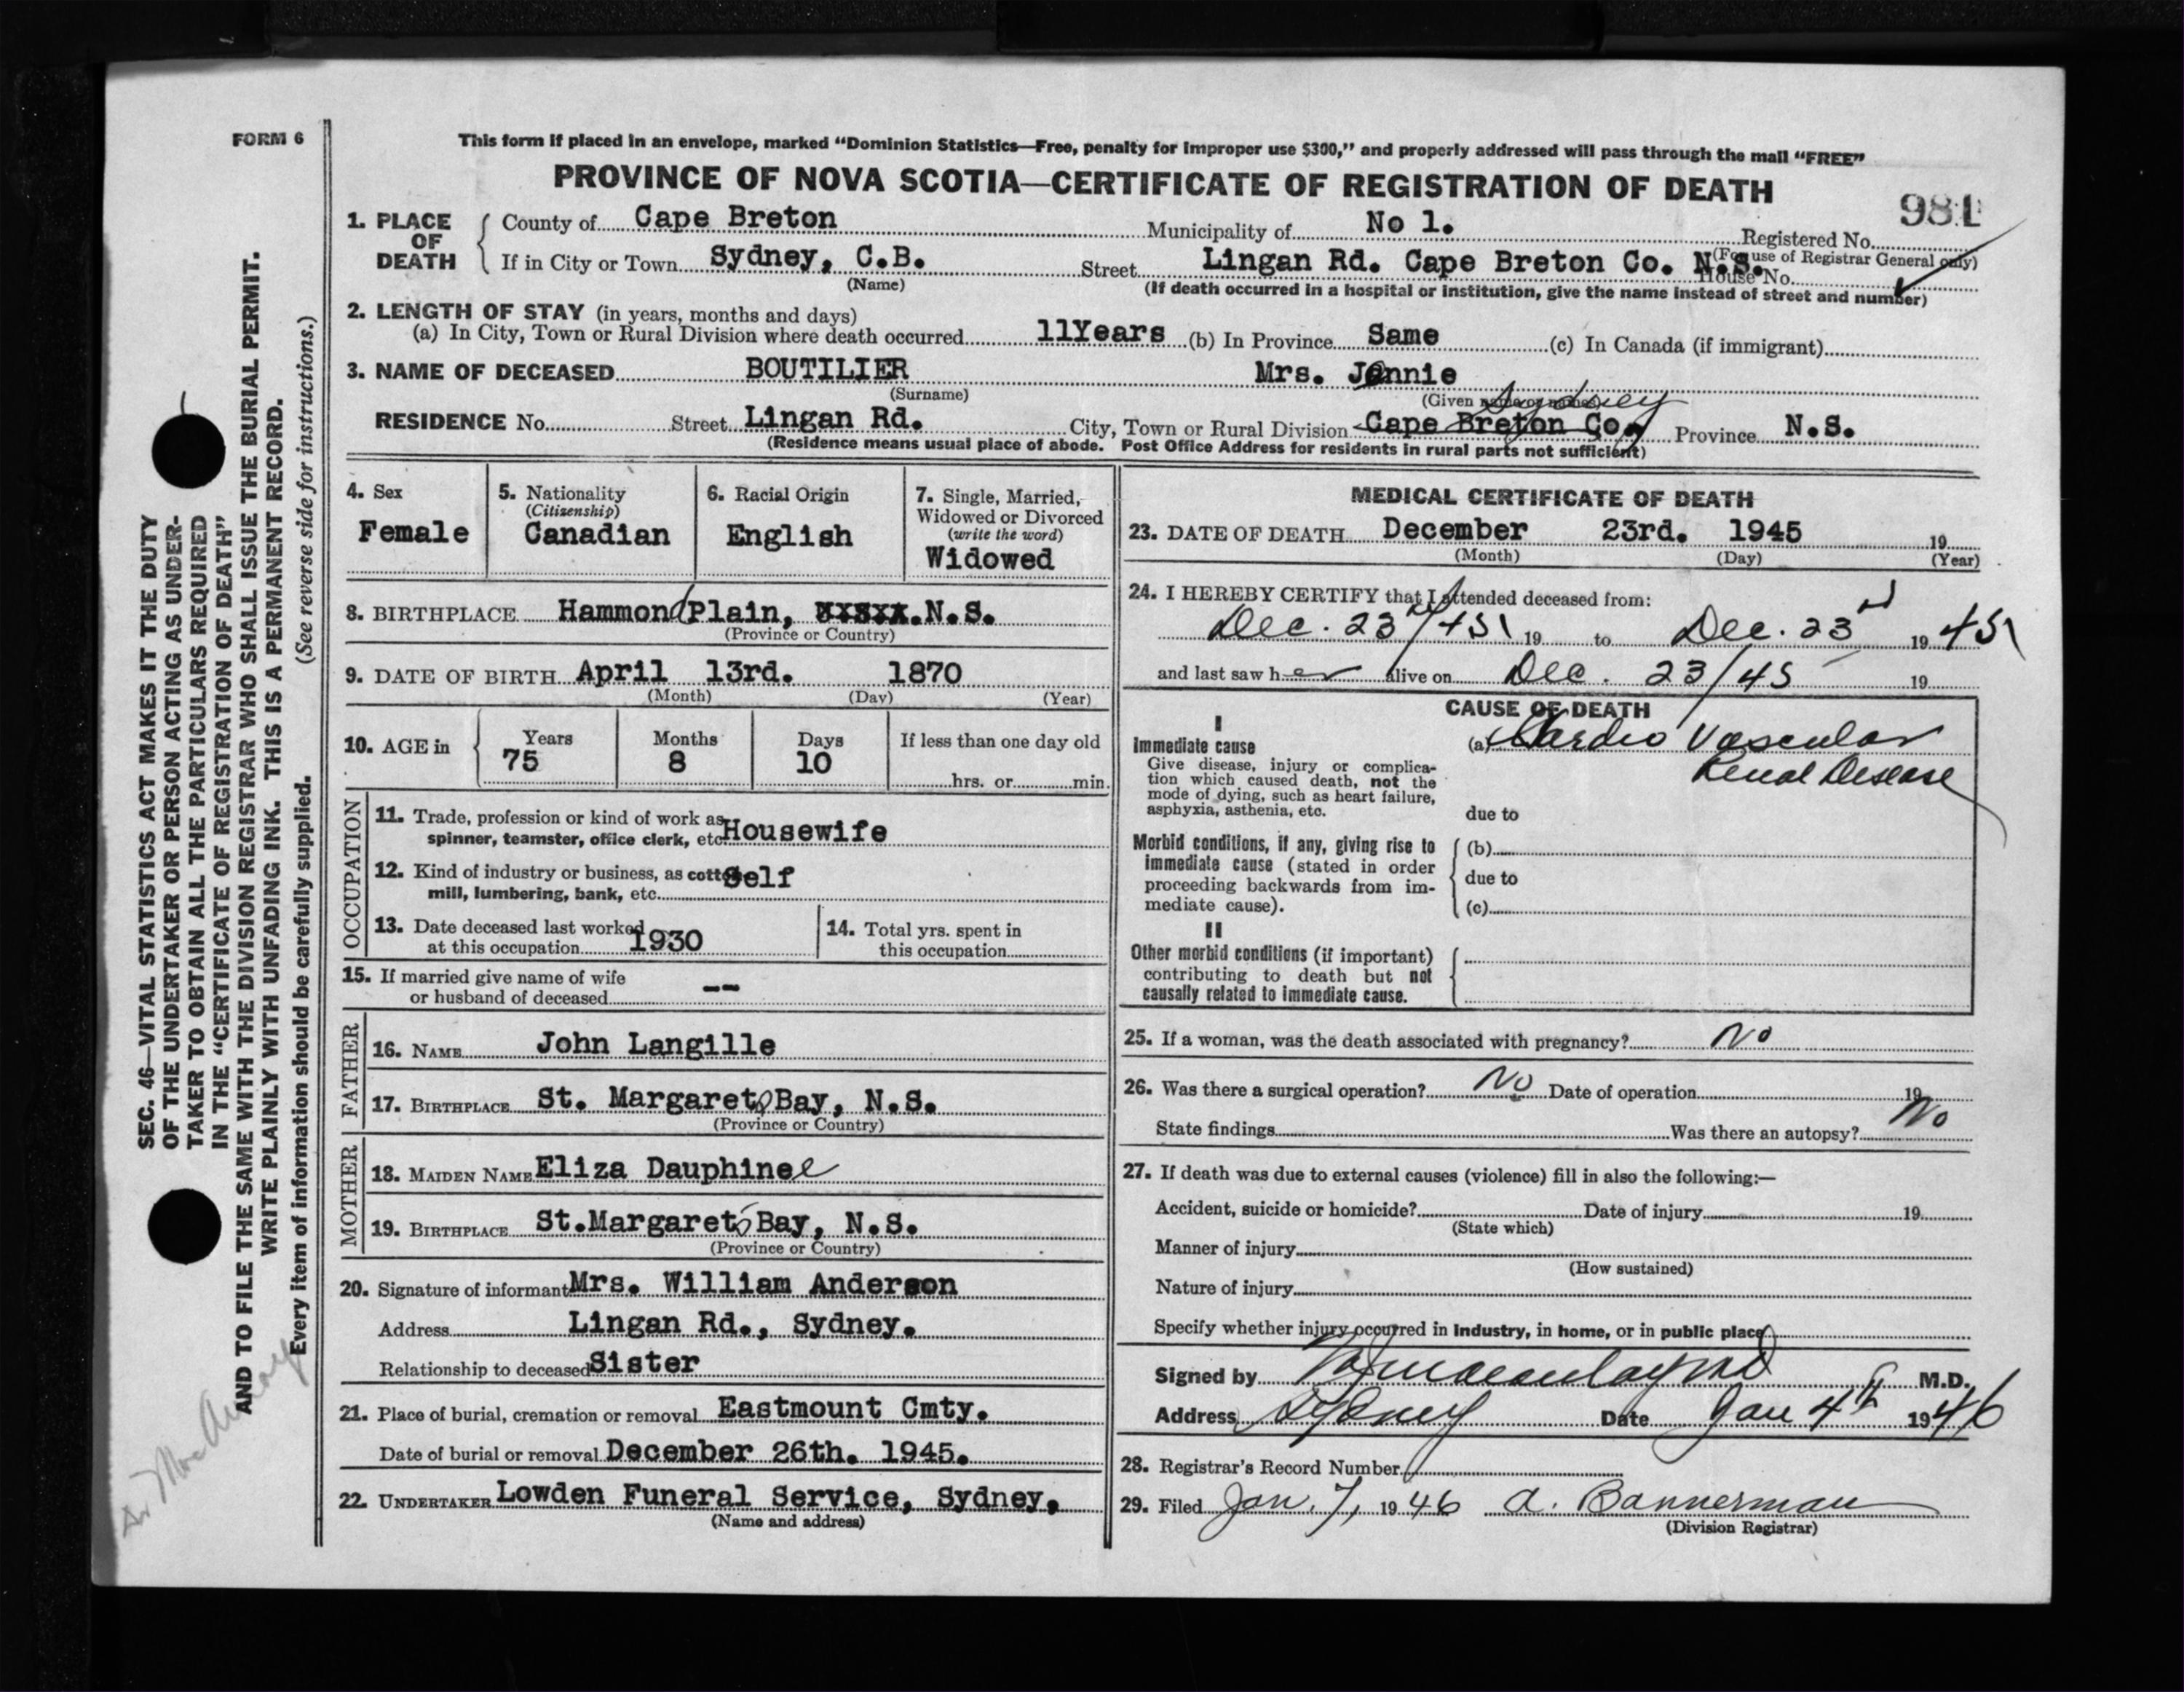 FORM 6
This form if placed in an envelope, marked “Dominion Statistics—Free, penalty for improper use $300,” and properly addressed will pass through the mail “FREE”
PROVINCE OF NOVA SCOTIA—CERTIFICATE OF REGISTRATION OF DEATH
981
1. PLACE OF DEATH
County of Cape Breton Municipality of No 1. Registered No.
(For use of Registrar General only)
If in City or Town Sydney, C.B. Street Lingan Rd. Cape Breton Co. N.S. House No.
(Name) (If death occurred in a hospital or institution, give the name instead of street and number)
2. LENGTH OF STAY (in years, months and days)
(a) In City, Town or Rural Division where death occurred 11Years (b) In Province Same (c) In Canada (if immigrant)
3. NAME OF DECEASED BOUTILIER Mrs. Jennie
(Surname) (Given name or names)
Sydney
RESIDENCE No. Street Lingan Rd. City, Town or Rural Division Cape Breton Co. Province N.S.
(Residence means usual place of abode. Post Office Address for residents in rural parts not sufficient)
4. Sex
Female
5. Nationality
(Citizenship)
Canadian
6. Racial Origin
English
7. Single, Married,
Widowed or Divorced
(write the word)
Widowed
8. BIRTHPLACE Hammond Plain, N.S.
(Province or Country)
9. DATE OF BIRTH April 13rd. 1870
(Month) (Day) (Year)
10. AGE in
Years Months Days If less than one day old
75 8 10
hrs. or min.
OCCUPATION
11. Trade, profession or kind of work as
spinner, teamster, office clerk, etc. Housewife
12. Kind of industry or business, as cotton Self
mill, lumbering, bank, etc.
13. Date deceased last worked
at this occupation 1930
14. Total yrs. spent in
this occupation
15. If married give name of wife
or husband of deceased --
FATHER
16. NAME John Langille
17. BIRTHPLACE St. Margarets Bay, N.S.
(Province or Country)
MOTHER
18. MAIDEN NAME Eliza Dauphinee
19. BIRTHPLACE St.Margarets Bay, N.S.
(Province or Country)
20. Signature of informant Mrs. William Anderson
Address Lingan Rd., Sydney.
Relationship to deceased Sister
21. Place of burial, cremation or removal Eastmount Cmty.
Date of burial or removal December 26th. 1945.
22. UNDERTAKER Lowden Funeral Service, Sydney.
(Name and address)
MEDICAL CERTIFICATE OF DEATH
23. DATE OF DEATH December 23rd. 1945 19
(Month) (Day) (Year)
24. I HEREBY CERTIFY that I attended deceased from:
Dec. 23rd/45 19 to Dec. 23rd 1945
and last saw her alive on Dec. 23/45 19
CAUSE OF DEATH
I
Immediate cause
Give disease, injury or complica-
tion which caused death, not the
mode of dying, such as heart failure,
asphyxia, asthenia, etc.
(a) Cardio Vascular
Renal Disease
due to
Morbid conditions, if any, giving rise to
immediate cause (stated in order
proceeding backwards from im-
mediate cause).
(b)
due to
(c)
II
Other morbid conditions (if important)
contributing to death but not
causally related to immediate cause.
25. If a woman, was the death associated with pregnancy? No
26. Was there a surgical operation? No Date of operation 19
State findings Was there an autopsy? No
27. If death was due to external causes (violence) fill in also the following:—
Accident, suicide or homicide? Date of injury 19
(State which)
Manner of injury
(How sustained)
Nature of injury
Specify whether injury occurred in industry, in home, or in public place
Signed by Macaulay MD M.D.
Address Sydney Date Jan 4th 1946
28. Registrar's Record Number
29. Filed Jan. 7, 1946 A. Bannerman
(Division Registrar)
SEC. 46—VITAL STATISTICS ACT MAKES IT THE DUTY
OF THE UNDERTAKER OR PERSON ACTING AS UNDER-
TAKER TO OBTAIN ALL THE PARTICULARS REQUIRED
IN THE “CERTIFICATE OF REGISTRATION OF DEATH”
AND TO FILE THE SAME WITH THE DIVISION REGISTRAR WHO SHALL ISSUE THE BURIAL PERMIT.
WRITE PLAINLY WITH UNFADING INK. THIS IS A PERMANENT RECORD.
Every item of information should be carefully supplied. (See reverse side for instructions.)